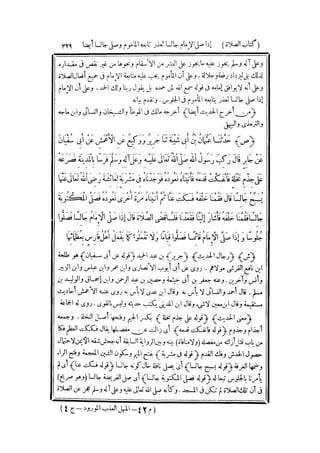 (كتاب الصلاة) إذا صلى الإمام جالسا لعذر تابعه المأموم وصلى جالسا أيضا ٣٢٩
وعلى آله وسلم يجوز عليه ما يجوز على البشر من الأسقام ونحوها من غير نقص فى مقداره
لذلك بل ليزداد رفعة وجلالة. وعلى أن المأموم يجب عليه متابعة الإمام فى جميع أفعال الصلاة
وعلى أنه لا يوافق إمامه فى قوله سمع الله لمن حمده بل يقول ربنا ولك الحمد. وعلى أن الإمام
إذا صلى جالسا لعذر يتابعه المأموم فى الجلوس. وتقدم بيانه
(من أخرج الحديث أيضا) أخرجه مالك فى الموطأ والشيخان والنسائى وابن ماجه
والترمذى والبيهقى
(ص) حدثنا عثمان بن أبى شيبة ثنا جرير ووكيع عن الأعمش عن أبى سفيان
عن جابر قال ركب رسول الله صلى الله تعالى عليه وعلى آله وسلم فرسا بالمدينة فصرعه
على جذم نخلة فانفكت قدمه فأتيناه نعوده فوجدناه فى مشربة لعائشة رضى الله تعالى عنها
يسبح جالسا قال فقمنا خلفه فسكت عنا ثم أتيناه مرة أخرى نعوده فصلى المكتوبة
جالسا فقمنا خلفه فأشار إلينا فقعدنا فلما قضى الصلاة قال إذا صلى الإمام جالسا فصلوا
جلوسا وإذا صلى الإمام قائما فصلوا قياما ولا تفعلوا كما يفعل أهل فارس بعظمائها
(ش) (رجال الحديث) (جرير) بن عبد الحميد (قوله عن أبى سفيان) هو طلحة
ابن نافع القرشى مولاهم. روى عن أبى أيوب الأنصارى وابن عمر وابن عباس وابن الزبير
وأنس وآخرين. وعنه جعفر بن أبى وحشية وحصين بن عبد الرحمن وابن إسحاق والوليد بن
مسلم. قال أحمد والنسائى لا بأس به وقال ابن عدى لا بأس به روى عنه الأعمش أحاديث
مستقيمة وقال ابن معين لا شىء وقال ابن المدينى يكتب حديثه وليس بالقوى. روى له الجماعة
(معنى الحديث) (قوله على جذم نخلة) بكسر الجيم وفتحها أصل النخلة. وجمعه
أجذام وجذوم (قوله فانفكت قدمه) أى زالت عن مفصلها يقال فككت العظم فكا
من باب قتل أزلته من مفصله (ولا منافاة) بينه وبين الرواية السابقة أنه جحش شقه الأيمن لاحتمال
حصول الجحش وفك القدم (قوله فى مشربة) بفتح الميم وسكون الشين المعجمة وفتح الراء
وضمها الغرفة (قوله يسبح جالسا) أى يصلى نافلة حال كونه جالسا (قوله فسكت عنا) أى لم
يأمرنا بالجلوس تبعا له (قوله فصلى المكتوبة جالسا) أى صلى الفريضة جالسا (وهو صريح)
فى أن تلك الصلاة لم تكن فى المسجد. وكأنه صلى الله تعالى عليه وعلى آله وسلم عجز عن الصلاة
(م ٤٢ - المنهل العذب المورود - ج ٤)